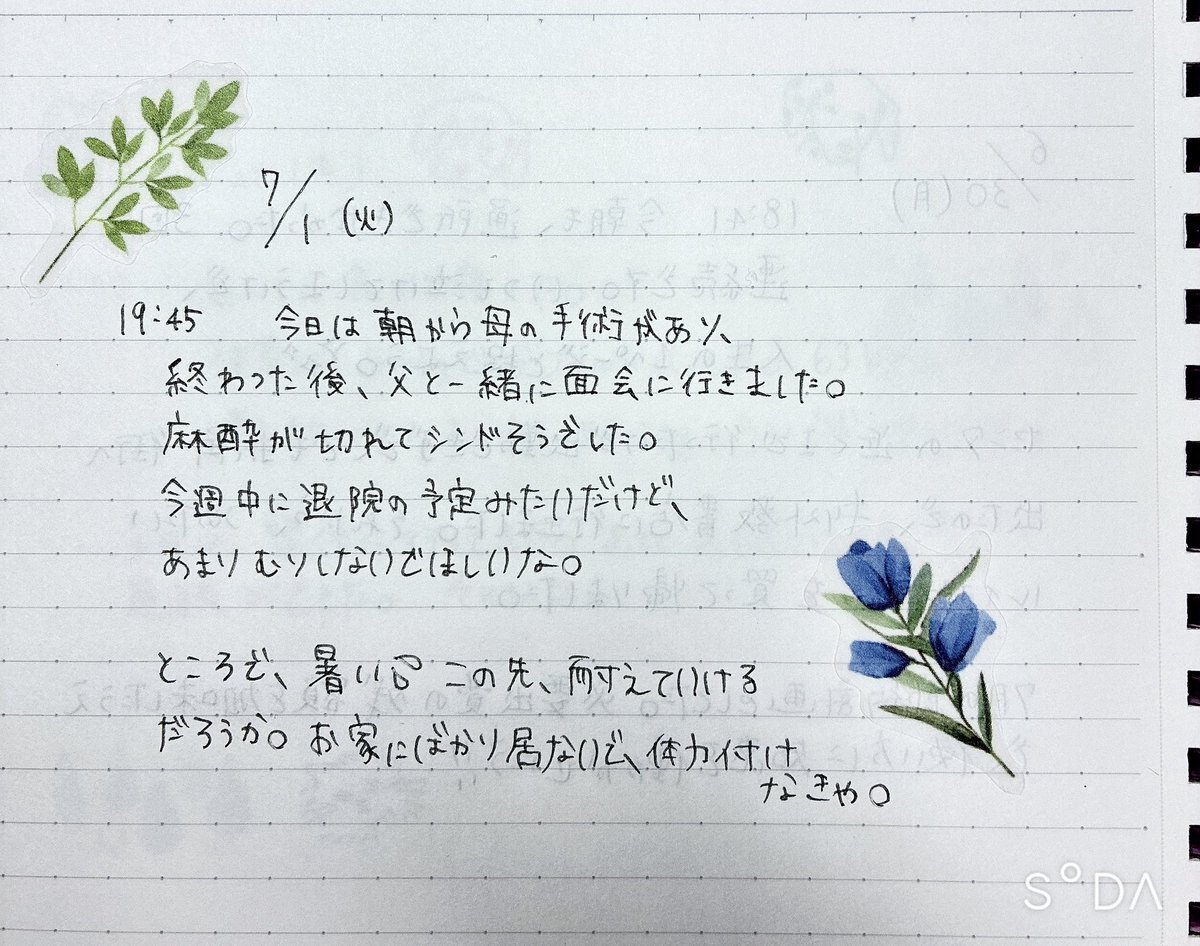 7/1 (火)
19:45 今日は朝から母の手術があり、
終わった後、父と一緒に面会に行きました。
麻酔が切れてシンドそうでした。
今週中に退院の予定みたいだけど、
あまりむりしないでほしいな。
ところで、暑い この先、耐えていける
だろうか。お家にばかり居ないで、体力付け
なきゃ。
SODA